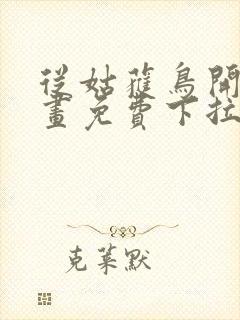 從姑蘿鳥開
畫免費下拉
克萊默